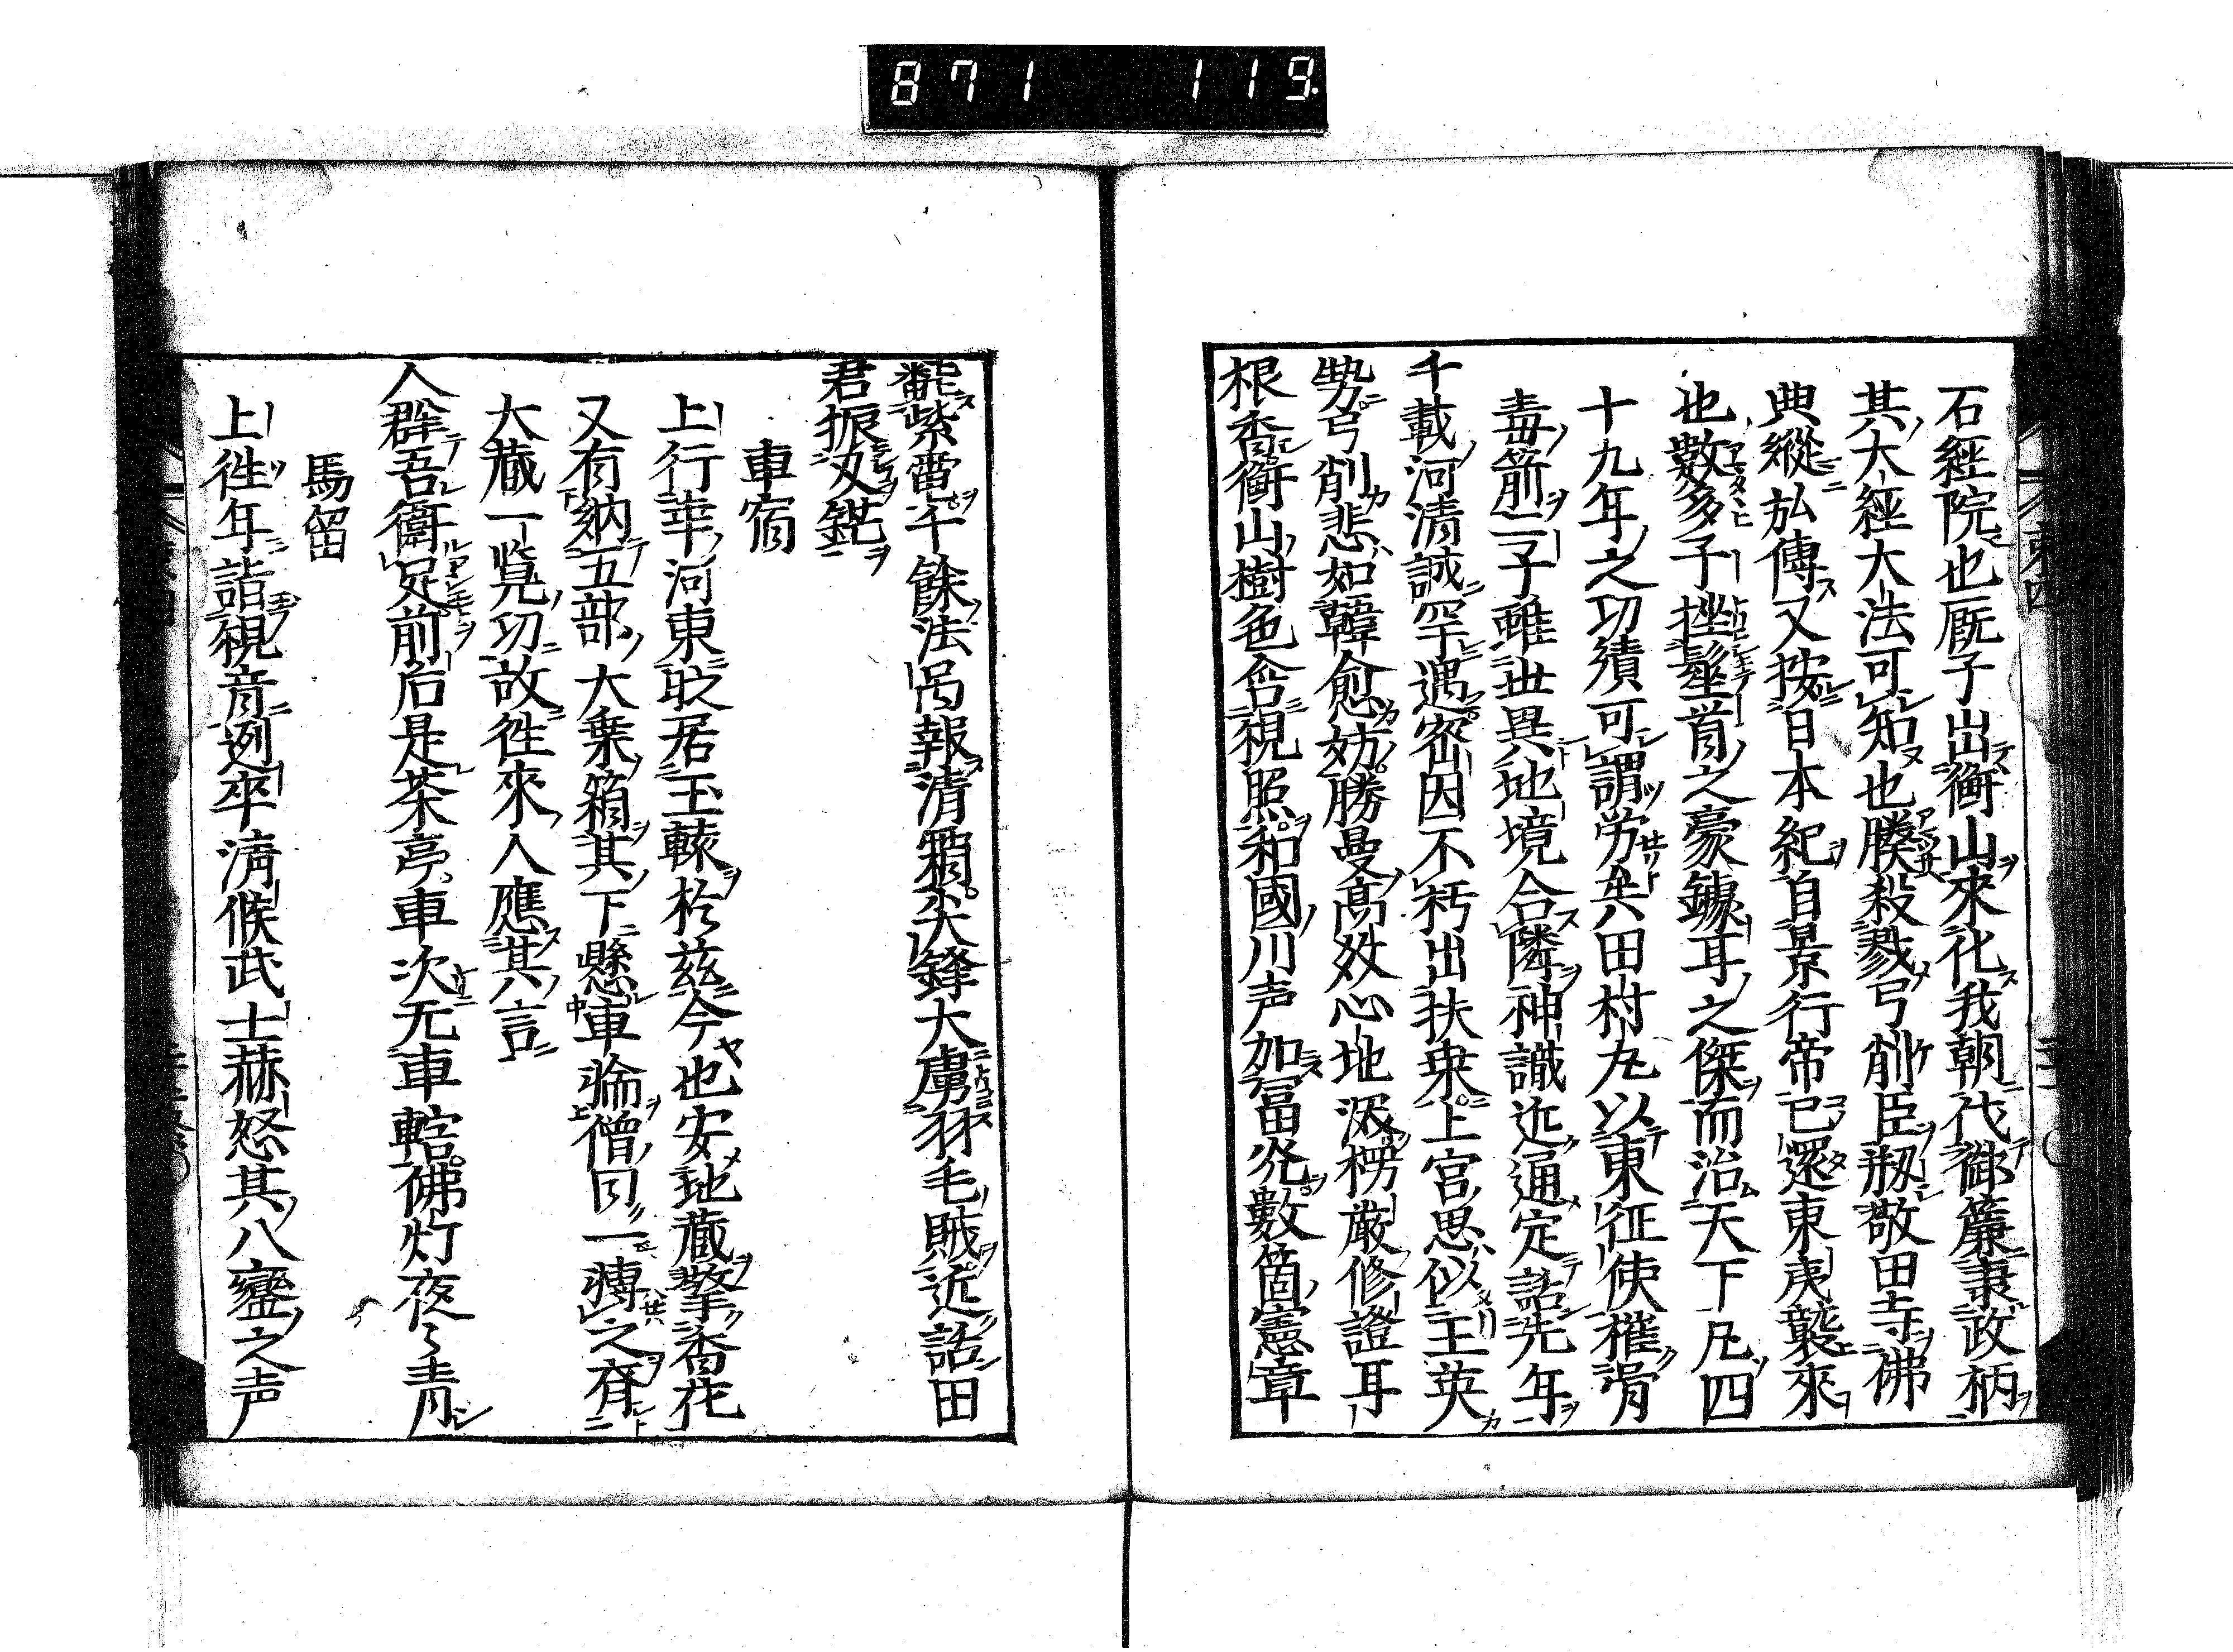 871 119
石經院也厩子出衡山來化我朝代御簾隶政柄
其大經大法可知也勝殺戮弓削臣剏敬田寺佛
典縱弘傳又按日本紀自景行帝已還東夷襲來
也數多子挫髽首之豪鐻耳之傑而治天下凡四
十九年之功績可謂労矣田村丸以東征使摧骨
毒箭二子雖世異地境合隣神識迩通定話先年
千載河清誠罕遇密因不朽出扶桑上宮思似王英
勢弓削悲如韓愈妨勝曼高效心地汲楞厳修證耳
根香衡山樹色含視照和國川声加冨発數箇憲章
紫雷千餘法呂報清霜尖鋒大虜羽毛賊近話田
君振汊鋩
車宿
上行幸河東耿居玉轅於慈今也安地蔵擎香花
又有納五部大乗箱其下懸車輪僧曰一轉之脊
大蔵一覧功故徃來人應其言
人群吾衞足前后是茶亭車次无車轄佛灯夜々青
馬留
上徃年詣視音迾卒清候武士赫怒其八蠻之声